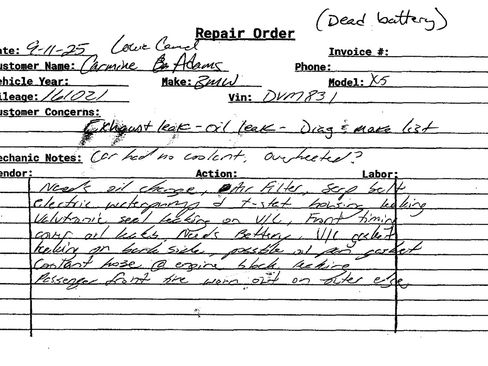 (Dead battery)
Repair Order
ate: 9-11-25
Invoice #:
ustomer Name: Carmine Adams Phone:
ehicle Year: Make: BMW Model: X5
ileage: 161021 Vin: DVM831
ustomer Concerns:
Exhaust leak - oil leak - Diag & make list
echanic Notes: Car had no coolant, overheated?
endor: Action: Labor:
Needs oil change, Air Filter, Serp belt
electric waterpump & t-stat housing leaking
Valvetronic seal leaking on V/C, Front timing
cover oil leaks, Needs Battery, V/C gasket
leaking on back side, possible oil pan gasket
Coolant hose @ engine block leaking
Passenger front tire worn out on outer edge